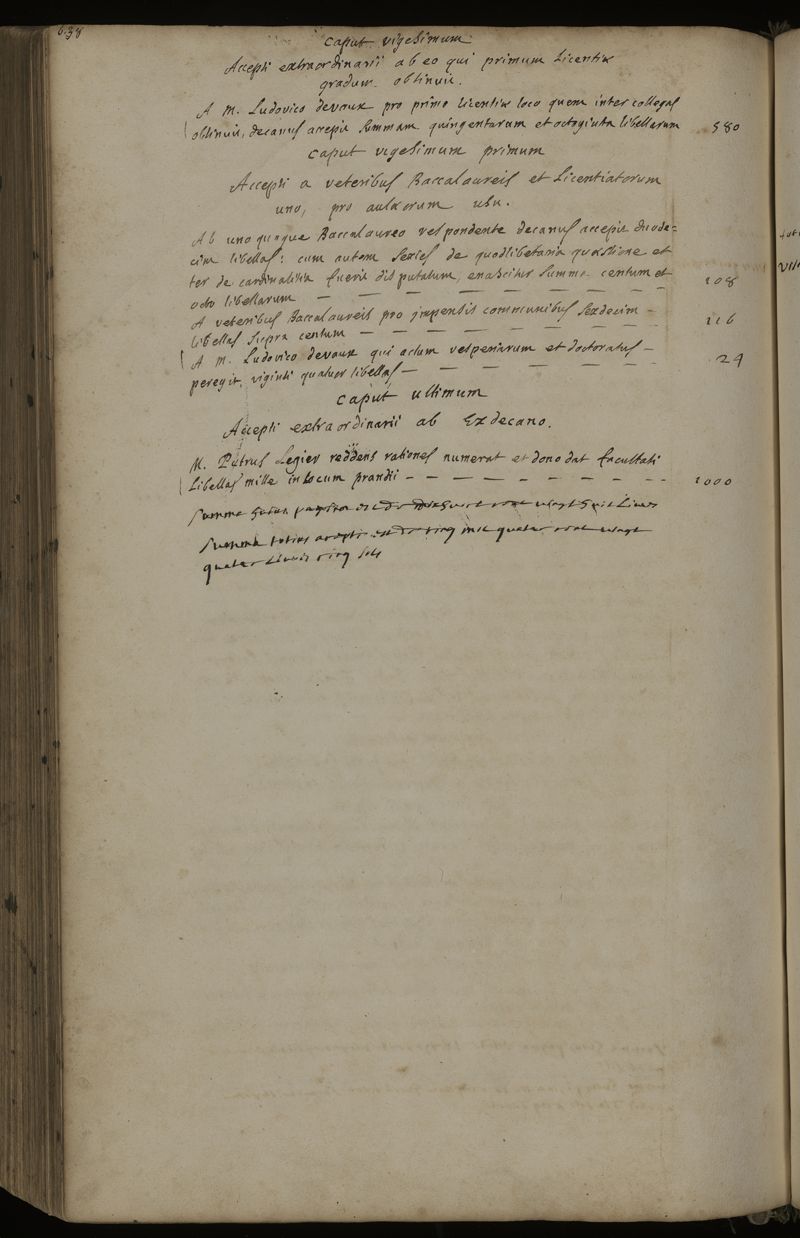 638
Caput vigesimum
Accepti extraordinarii ab eo qui primum Licentiæ
gradum obtinuit.
A M. Ludovico devaux pro primo licentiæ loco quem inter collegas
obtinuit, decanus accepit summam quingentarum et octoginta libellarum 580
Caput vigesimum primum
Accepti a veteribus Baccalaureis et Licentiatorum
uno, pro aulæorum usu.
Ab unoquoque Baccalaureo respondente decanus accepit duode=
cim libellas: cum autem sexies de quodlibetaria quæstione et
ter de cardinalitia fuerit disputatum, enascitur summa centum et
octo libellarum — — — — — — — — 108
A veteribus Baccalaureis pro impensis communibus sexdecim -
libellas supra centum — — — — — — — — 116
A M. Ludovico devaux qui actum vesperiarum et doctoratus -
peregit, viginti quatuor libellas — — — — — — — 24
Caput ultimum
Accepti extraordinarii ab Exdecano.
M. Petrus Legier reddens rationes numerat et dono dat facultati
libellas mille in locum prandii - - - - - - - - - 1000
Summa huius paginæ est de dixhuit cent vingt huit Livres
Summa totius accepti est de cinq mil quatre cent vingt
quatre Livres cinq sols